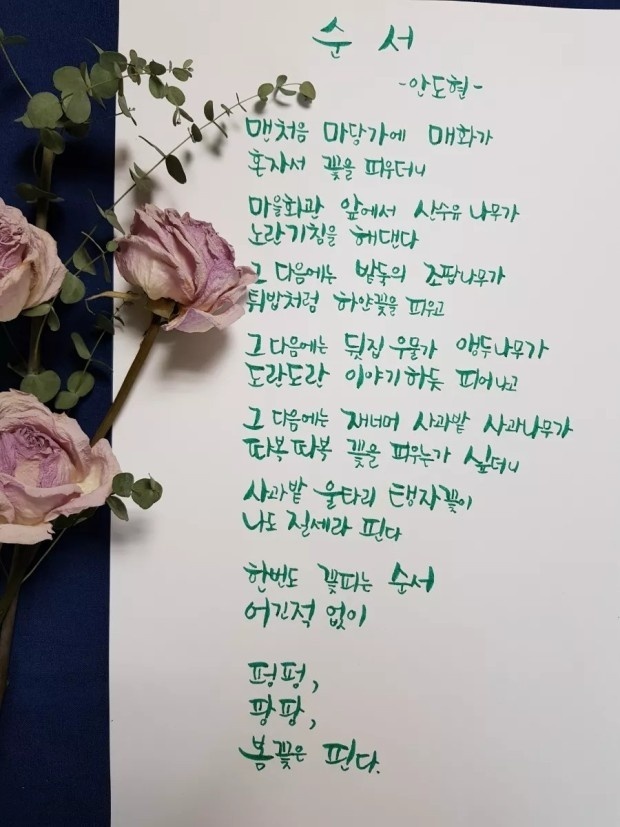 순서
-안도현-
맨처음 마당가에 매화가
혼자서 꽃을 피우더니
마을회관 앞에서 산수유 나무가
노란기침을 해댄다
그 다음에는 밭둑의 조팝나무가
튀밥처럼 하얀꽃을 피우고
그 다음에는 뒷집 우물가 앵두나무가
도란도란 이야기하듯 피어나고
그 다음에는 재너머 사과밭 사과나무가
따복따복 꽃을 피우는가 싶더니
사과밭 울타리 탱자꽃이
나도 질세라 핀다
한번도 꽃피는 순서
어긴적 없이
펑펑,
팡팡,
봄꽃은 핀다.